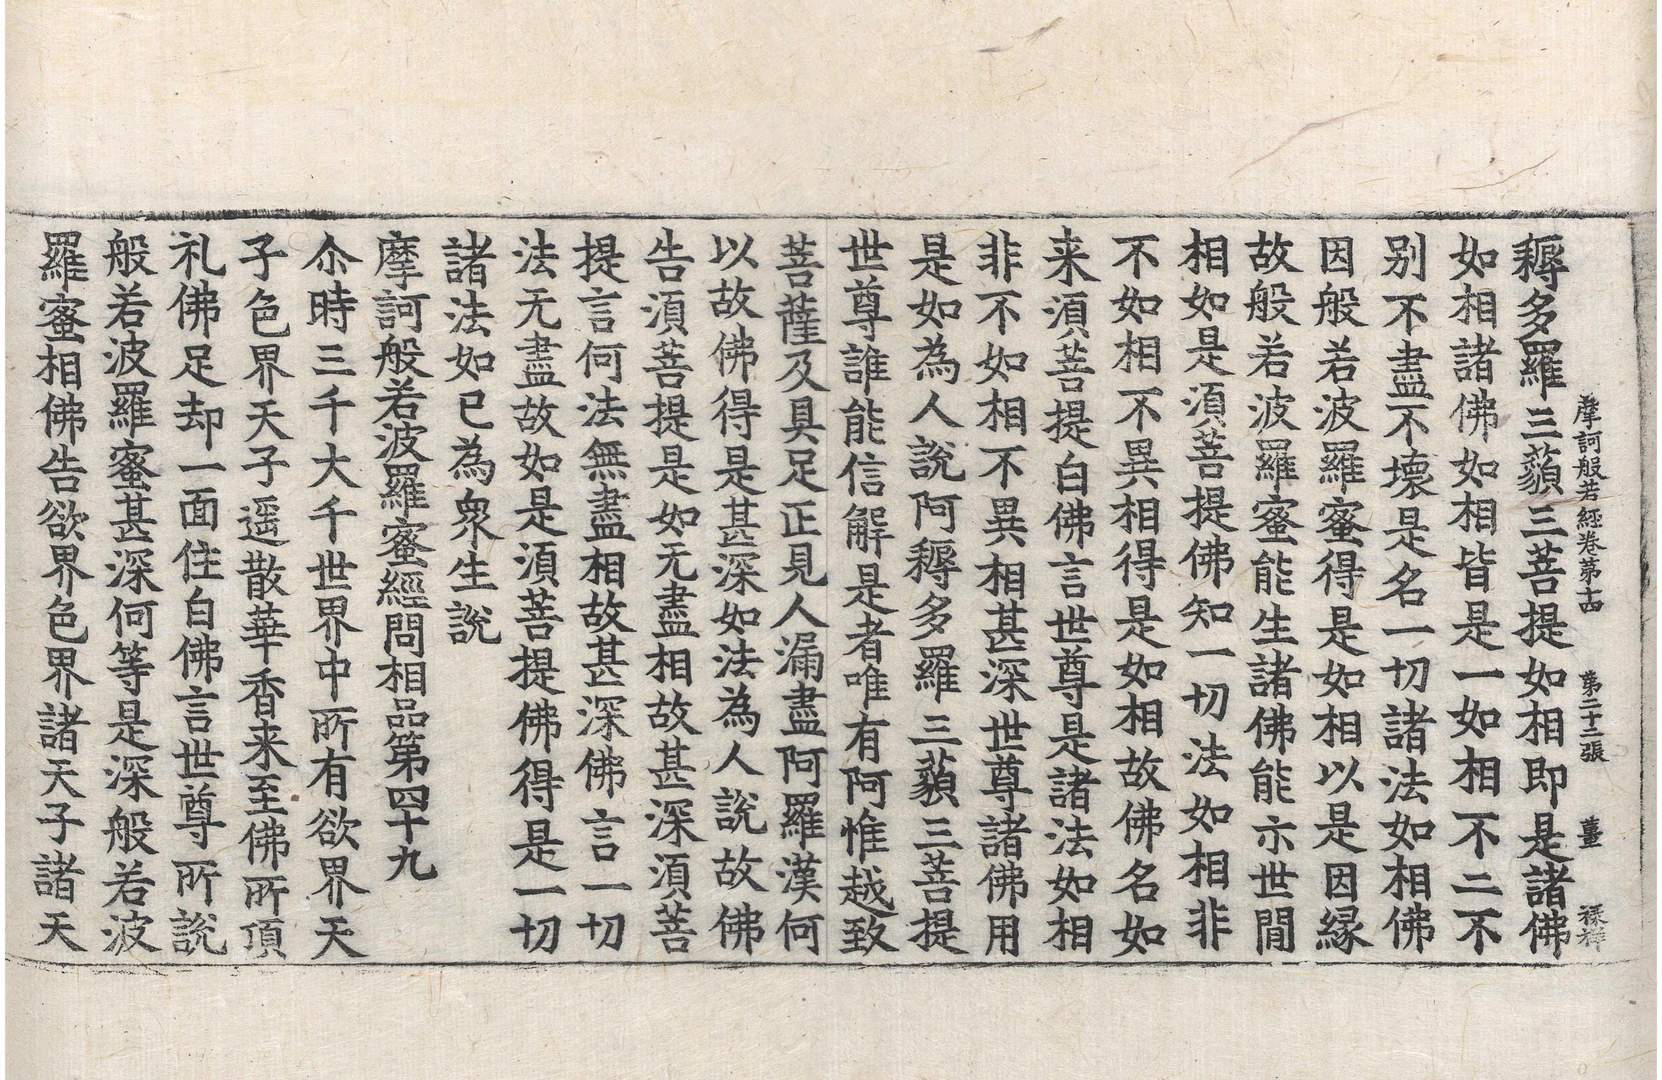 摩訶般若經卷第十四 第二十三張 薑 禄祥
耨多羅三藐三菩提如相即是諸佛
如相諸佛如相皆是一如相不二不
别不盡不壊是名一切諸法如相佛
因般若波羅蜜得是如相以是因縁
故般若波羅蜜能生諸佛能示世間
相如是湏菩提佛知一切法如相非
不如相不異相得是如相故佛名如
来湏菩提白佛言世尊是諸法如相
非不如相不異相甚深世尊諸佛用
是如為人說阿耨多羅三藐三菩提
世尊誰能信解是者唯有阿惟越致
菩薩及具足正見人漏盡阿羅漢何
以故佛得是甚深如法為人說故佛
告湏菩提是如无盡相故甚深湏菩
提言何法無盡相故甚深佛言一切
法无盡故如是湏菩提佛得是一切
諸法如已為衆生說
摩訶般若波羅蜜經問相品第四十九
尒時三千大千世界中所有欲界天
子色界天子遥散華香来至佛所頂
礼佛足却一面住白佛言世尊所說
般若波羅蜜甚深何等是深般若波
羅蜜相佛告欲界色界諸天子諸天